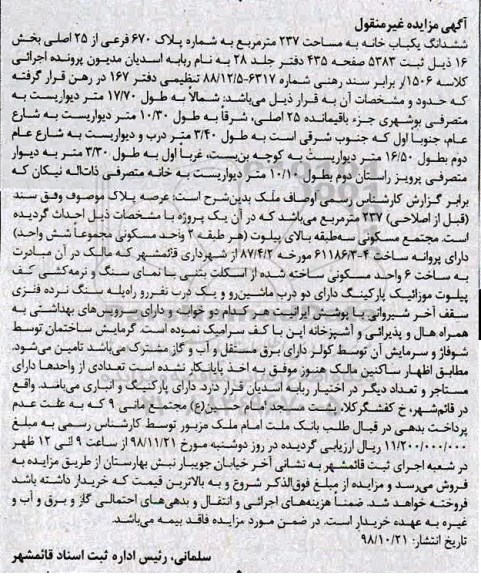 آگهی مزایده غیرمنقول
ششدانگ یکباب خانه به مساحت ۲۳۷ مترمربع به شماره پلاک ۶۷۰ فرعی از ۲۵ اصلی بخش
۱۶ ذیل ثبت ۵۳۸۳ صفحه ۴۳۵ دفتر جلد ۲۸ به نام ربابه اسدیان مدیون پرونده اجرائی
کلاسه ۱۵۰۶/ر برابر سند رهنی شماره ۶۳۱۷-۸۸/۱۲/۵ تنظیمی دفتر ۱۶۷ در رهن قرار گرفته
که حدود و مشخصات آن به قرار ذیل می‌باشد: شمالاً به طول ۱۷/۷۰ متر دیواریست به
متصرفی بوشهری جزء باقیمانده ۲۵ اصلی، شرقاً به طول ۱۰/۳۰ متر دیواریست به شارع
عام، جنوباً اول که جنوب شرقی است به طول ۳/۴۰ متر درب و دیواریست به شارع عام
دوم بطول ۱۶/۵۰ متر دیواریست به کوچه بن‌بست، غرباً اول به طول ۳/۳۰ متر به دیوار
متصرفی پرویز راستان دوم بطول ۱۰/۱۰ متر دیواریست به خانه متصرفی ذات‌اله نیکان که
برابر گزارش کارشناس رسمی اوصاف ملک بدین‌شرح است: عرصه پلاک موصوف وفق سند
(قبل از اصلاحی) ۲۳۷ مترمربع می‌باشد که در آن یک پروژه با مشخصات ذیل احداث گردیده
است. مجتمع مسکونی سه‌طبقه بالای پیلوت (هر طبقه ۲ واحد مسکونی مجموعاً شش واحد)
دارای پروانه ساخت ۴-۶۱۱۸۶/۳ مورخه ۸۷/۴/۲ از شهرداری قائمشهر که مالک در آن مبادرت
به ساخت ۶ واحد مسکونی ساخته شده از اسکلت بتنی با نمای سنگ و نرمه‌کشی کف
پیلوت موزائیک پارکینگ دارای دو درب ماشین‌رو و یک درب نفررو راه‌پله سنگ نرده فلزی
سقف آخر شیروانی با پوشش ایرانیت هر کدام دو خواب و دارای سرویس‌های بهداشتی به
همراه هال و پذیرائی و آشپزخانه اپن با کف سرامیک نموده است. گرمایش ساختمان توسط
شوفاژ و سرمایش آن توسط کولر دارای برق مستقل و آب و گاز مشترک می‌باشد تامین می‌شود.
مطابق اظهار ساکنین مالک هنوز موفق به اخذ پایانکار نشده است تعدادی از واحدها دارای
مستاجر و تعداد دیگر در اختیار ربابه اسدیان قرار دارد. دارای پارکینگ و انباری می‌باشد. واقع
در قائم‌شهر، خ کفشگرکلا، پشت مسجد امام حسین(ع) مجتمع مانی ۹ که به علت عدم
پرداخت بدهی در قبال طلب بانک ملت امام ملک مزبور توسط کارشناس رسمی به مبلغ
۱۱/۲۰۰/۰۰۰/۰۰۰ ریال ارزیابی گردیده در روز دوشنبه مورخ ۹۸/۱۱/۲۱ از ساعت ۹ الی ۱۲ ظهر
در شعبه اجرای ثبت قائمشهر به نشانی آخر خیابان جویبار نبش بهارستان از طریق مزایده به
فروش می‌رسد و مزایده از مبلغ فوق‌الذکر شروع و به بالاترین قیمت که خریدار داشته باشد
فروخته خواهد شد. ضمناً هزینه‌های اجرائی و انتقال و بدهی‌های احتمالی گاز و برق و آب و
غیره به عهده خریدار است. در ضمن مورد مزایده فاقد بیمه می‌باشد.
تاریخ انتشار: ۹۸/۱۰/۲۱
سلمانی، رئیس اداره ثبت اسناد قائمشهر